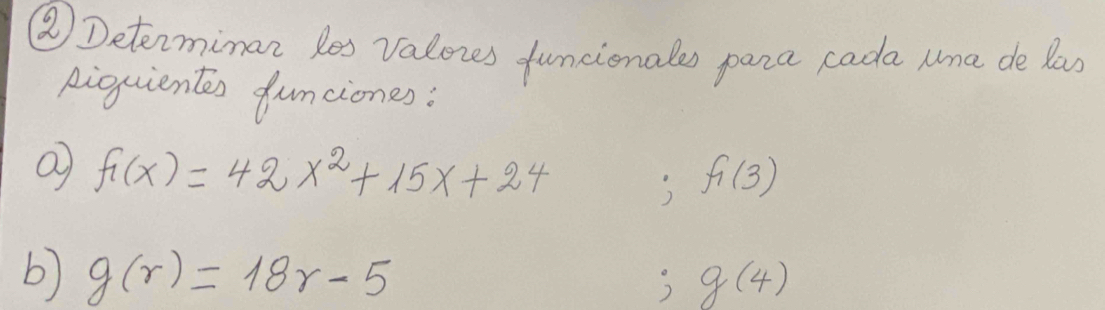 ② Determinar los valores funcionales para cada una de las
siguientes funciones:
a) f(x) = 42x² + 15x + 24 ; f(3)
b) g(r) = 18r - 5 ; g(4)